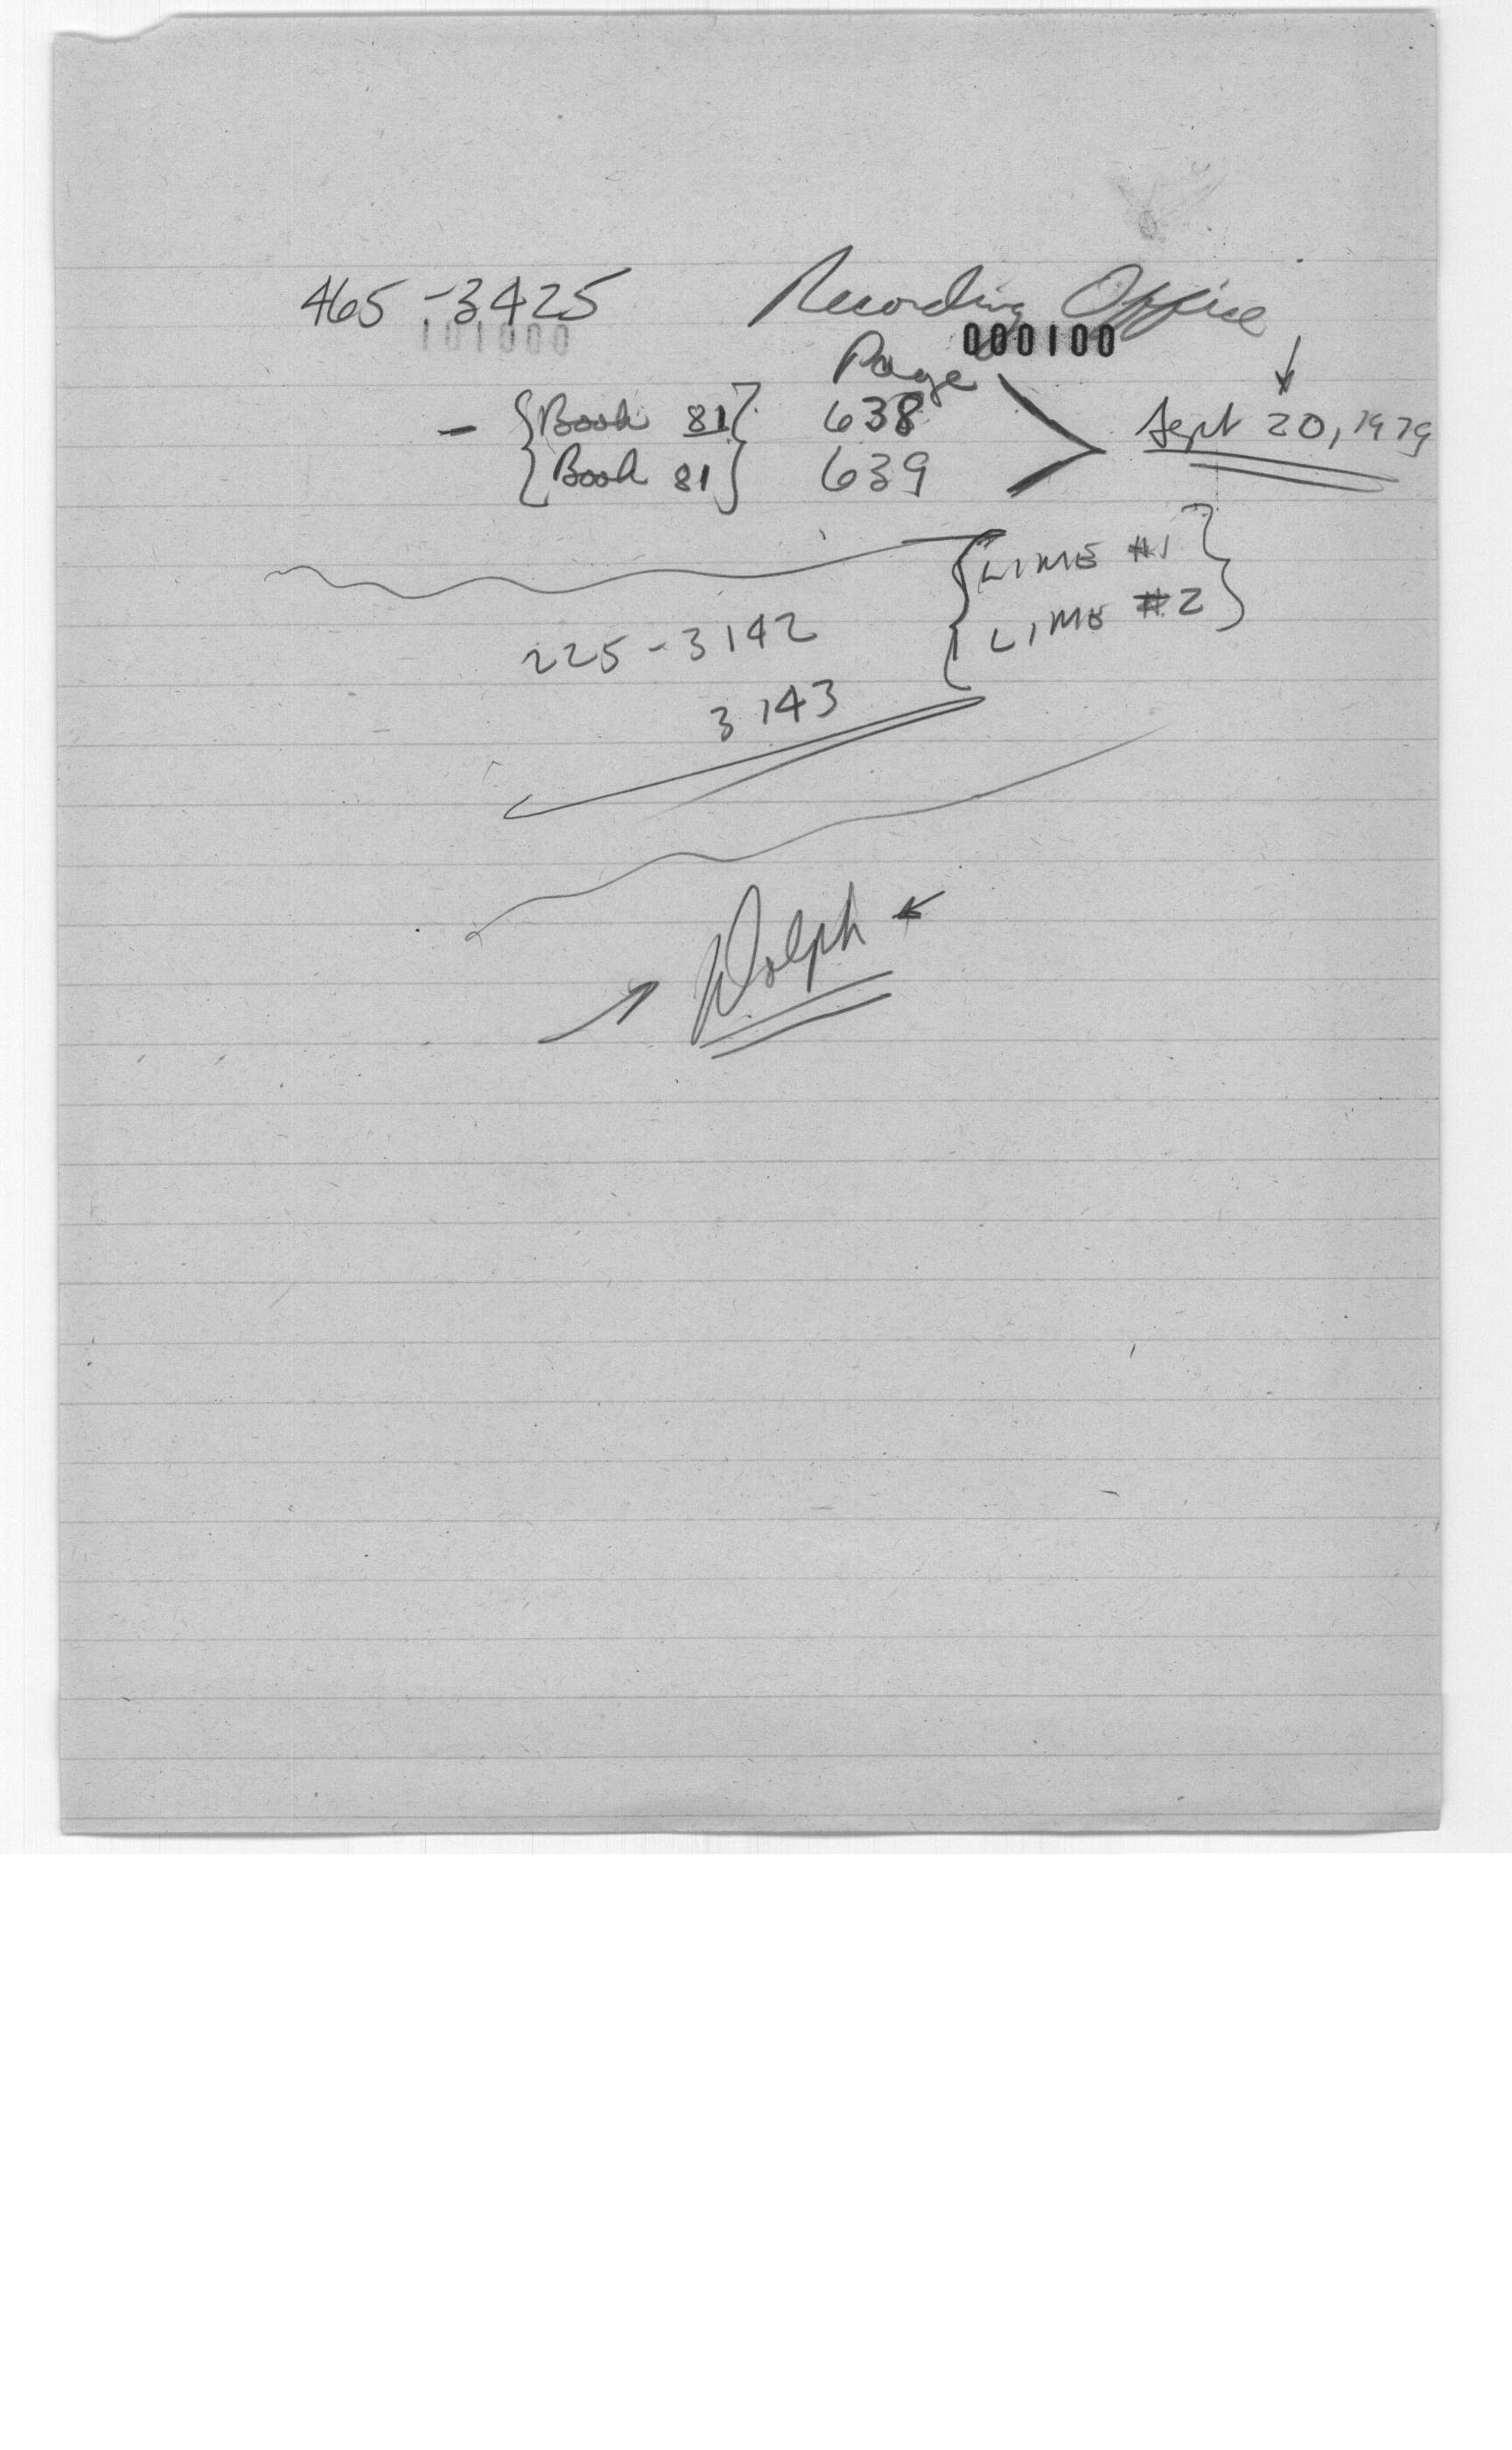 465-3425 Recording Office
101000
000100
Page
- {Book 81} 638 Sept 20, 1979
{Book 81} 639
{LIME #1}
{LIME #2}
225-3142
3143
Dolph